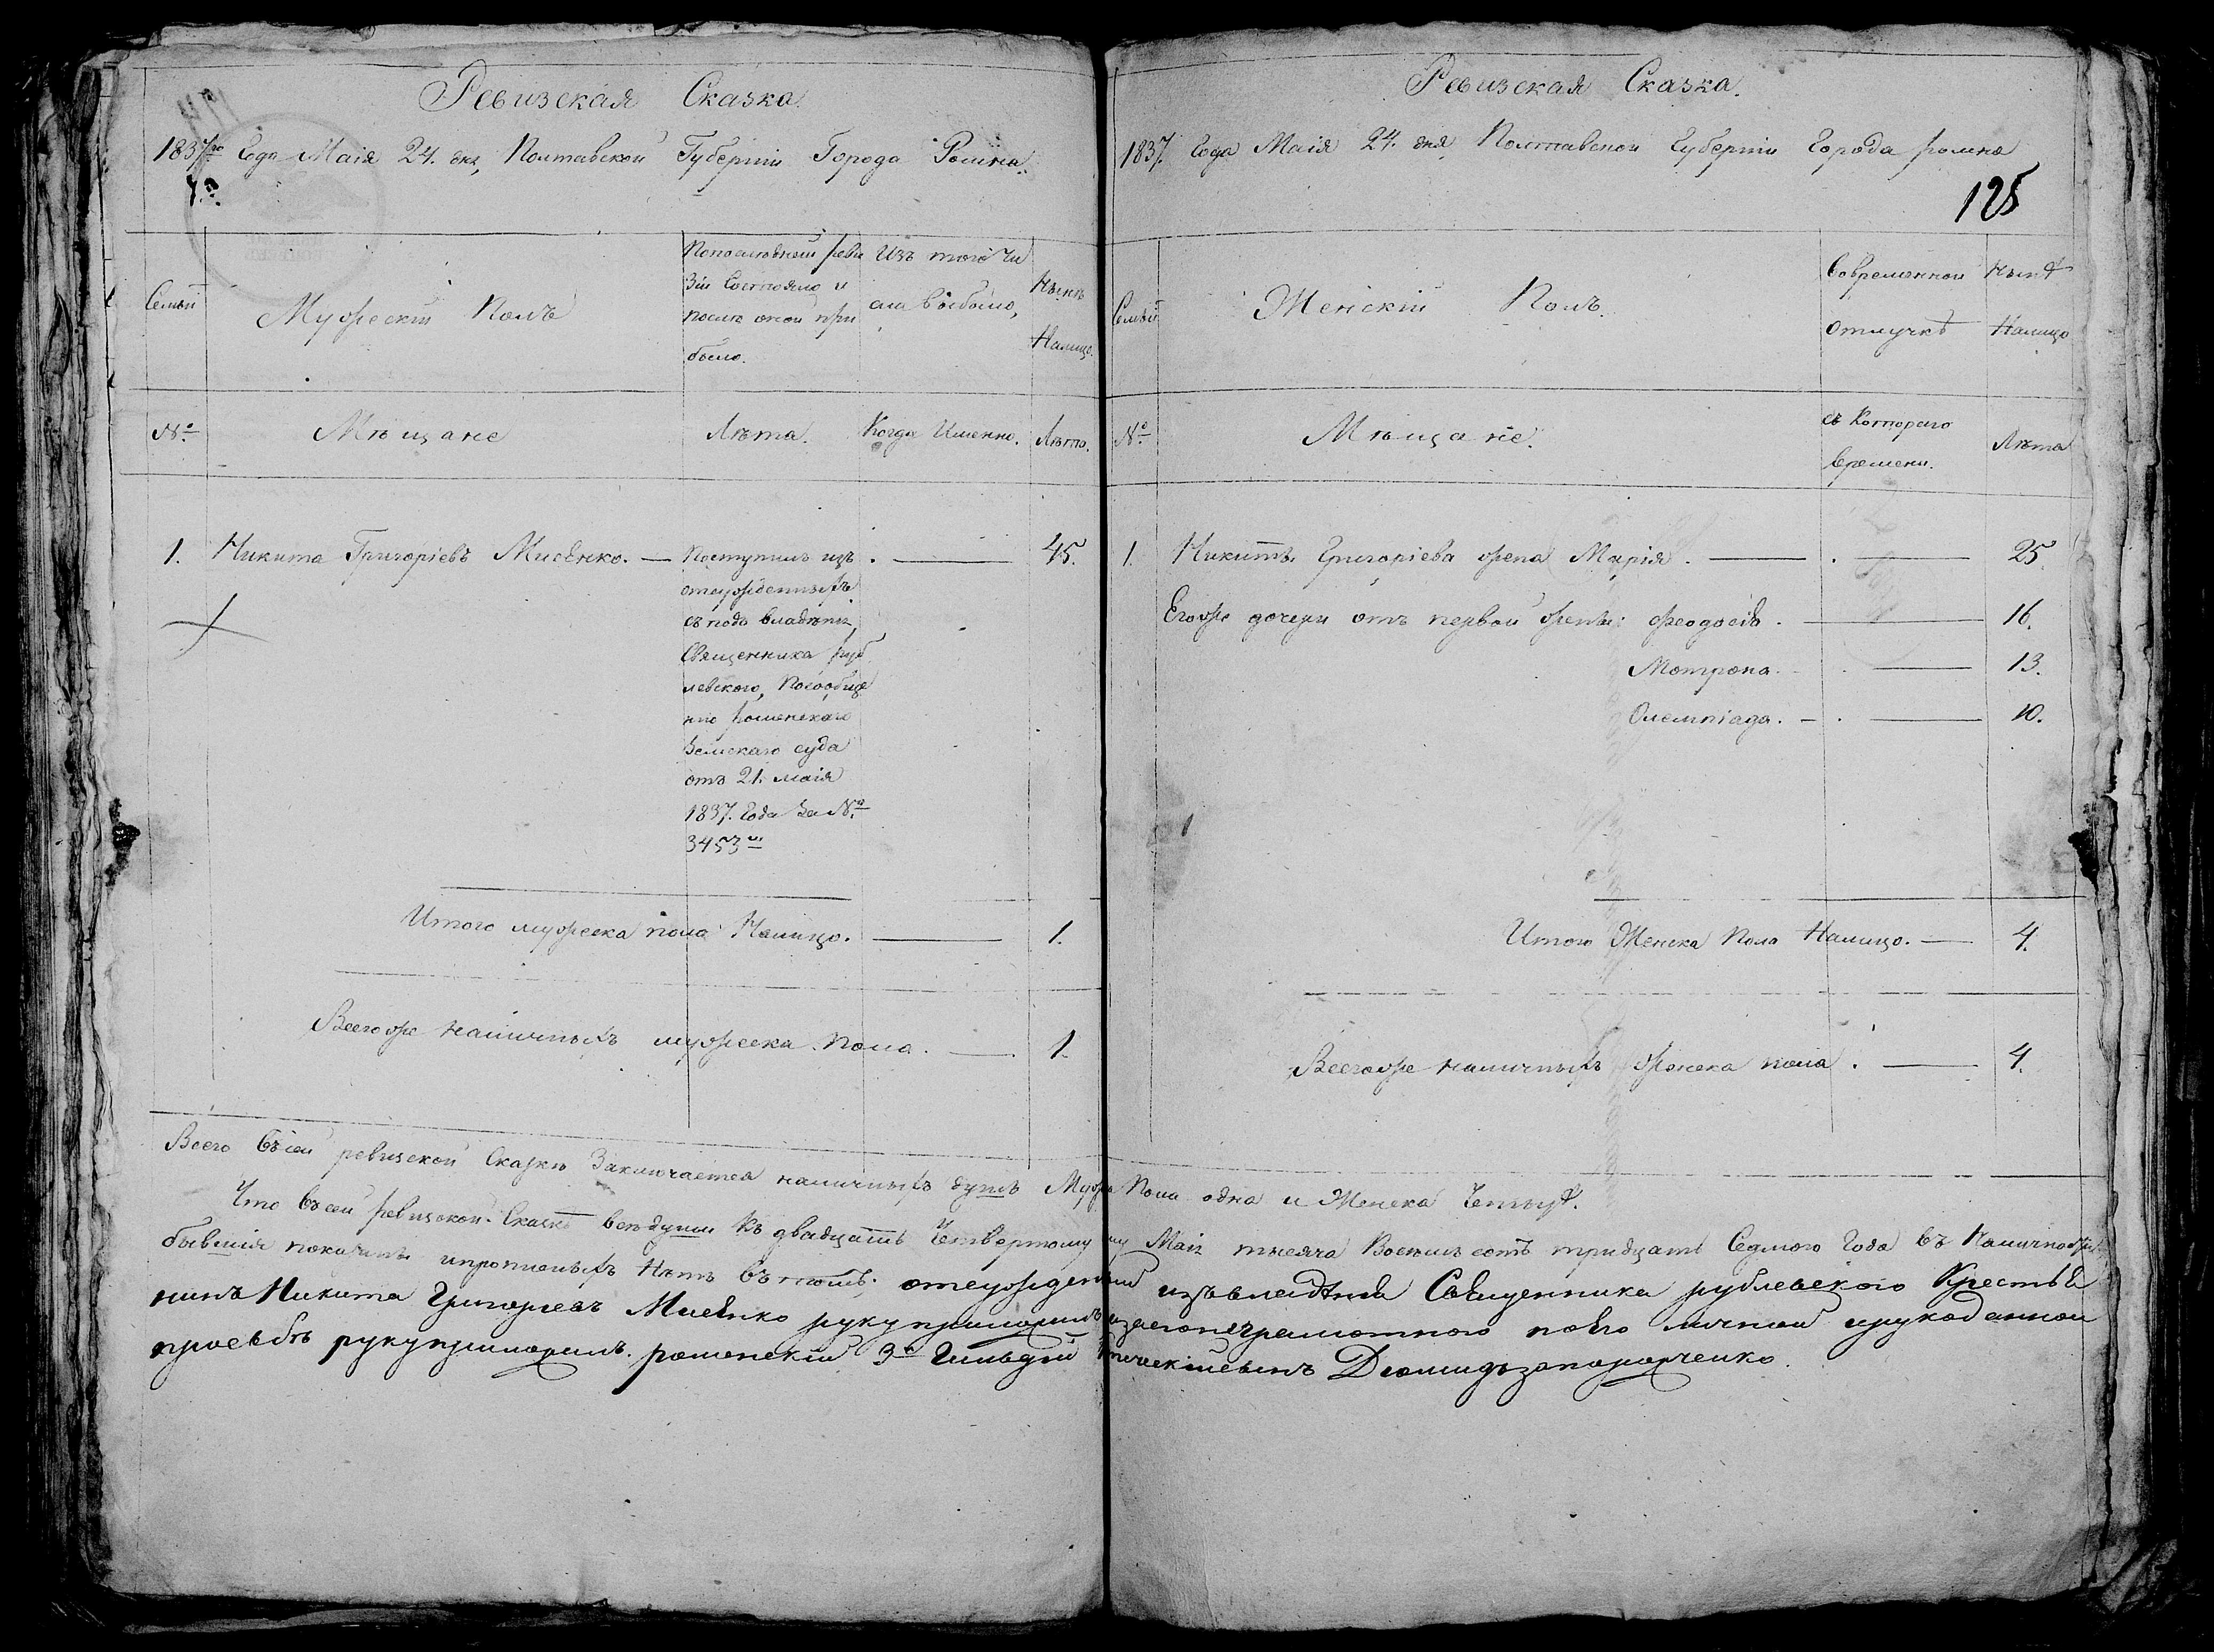 Ревизская Сказка.
1837го Года Маія 24. дня, Полтавской Губерніи Города Ромна.
Семьи
Мужескій Полъ
Попослѣдней реви
зіи Состояло и
послѣ оной при
было.
Изъ того Чи
сла выбыло,
Нынѣ
Налицо.
№
Мѣщане
Лѣта.
Когда Именно.
Лѣта.
1. Никита Григоріевъ Мисѣнко. — Поступилъ изъ . — 45.
отсужденныхъ
съ подъ владѣнія
Священника руб
левского, Посообще
нію роменскаго
Земскаго суда
отъ 21. маія
1837. Года За №
3453м
Итого мужеска пола Налицо. — 1.
Всегоже наличныхъ мужеска пола. — 1.
Ревизская Сказка.
1837. Года Маія 24. дня Полтавской Губерніи Города ромна
125
Семьи
Женскій Полъ.
Вовременной
отлучкѣ
Нынѣ
Налицо
№
Мѣщане.
съ Котораго
времени.
Лѣта
1. Никиты Григоріева жена Марія. — . — 25
Егоже дочери отъ первой жены: феодосія. — 16.
Мотрона. . — 13.
Олемпіада. — . — 10.
Итого Женска Пола Налицо. — 4.
Всегоже наличныхъ женска пола. — 4.
Всего Въсей ревизской Сказкѣ Заключается наличныхъ душъ Муже Пола одна и Женска Четыре.
Что Въсей ревизской Сказкѣ всѣ души Къ двадцать Четвертому Маія тысяча Восемь сотъ тридцать Седмого Года въ Наличности
бывшія показаны ипрописныхъ Нѣтъ Въ томъ; отсужденный изъвладѣнія Священника рублевского Крестья
нинъ Никита Григориевъ Мисѣнко руку приложилъ неграмотного поего личной ирукоданной
прозьбѣ руку приложилъ. роменскій 3й Гильдіи Купеческійсынъ Диомидъ запорожченко.